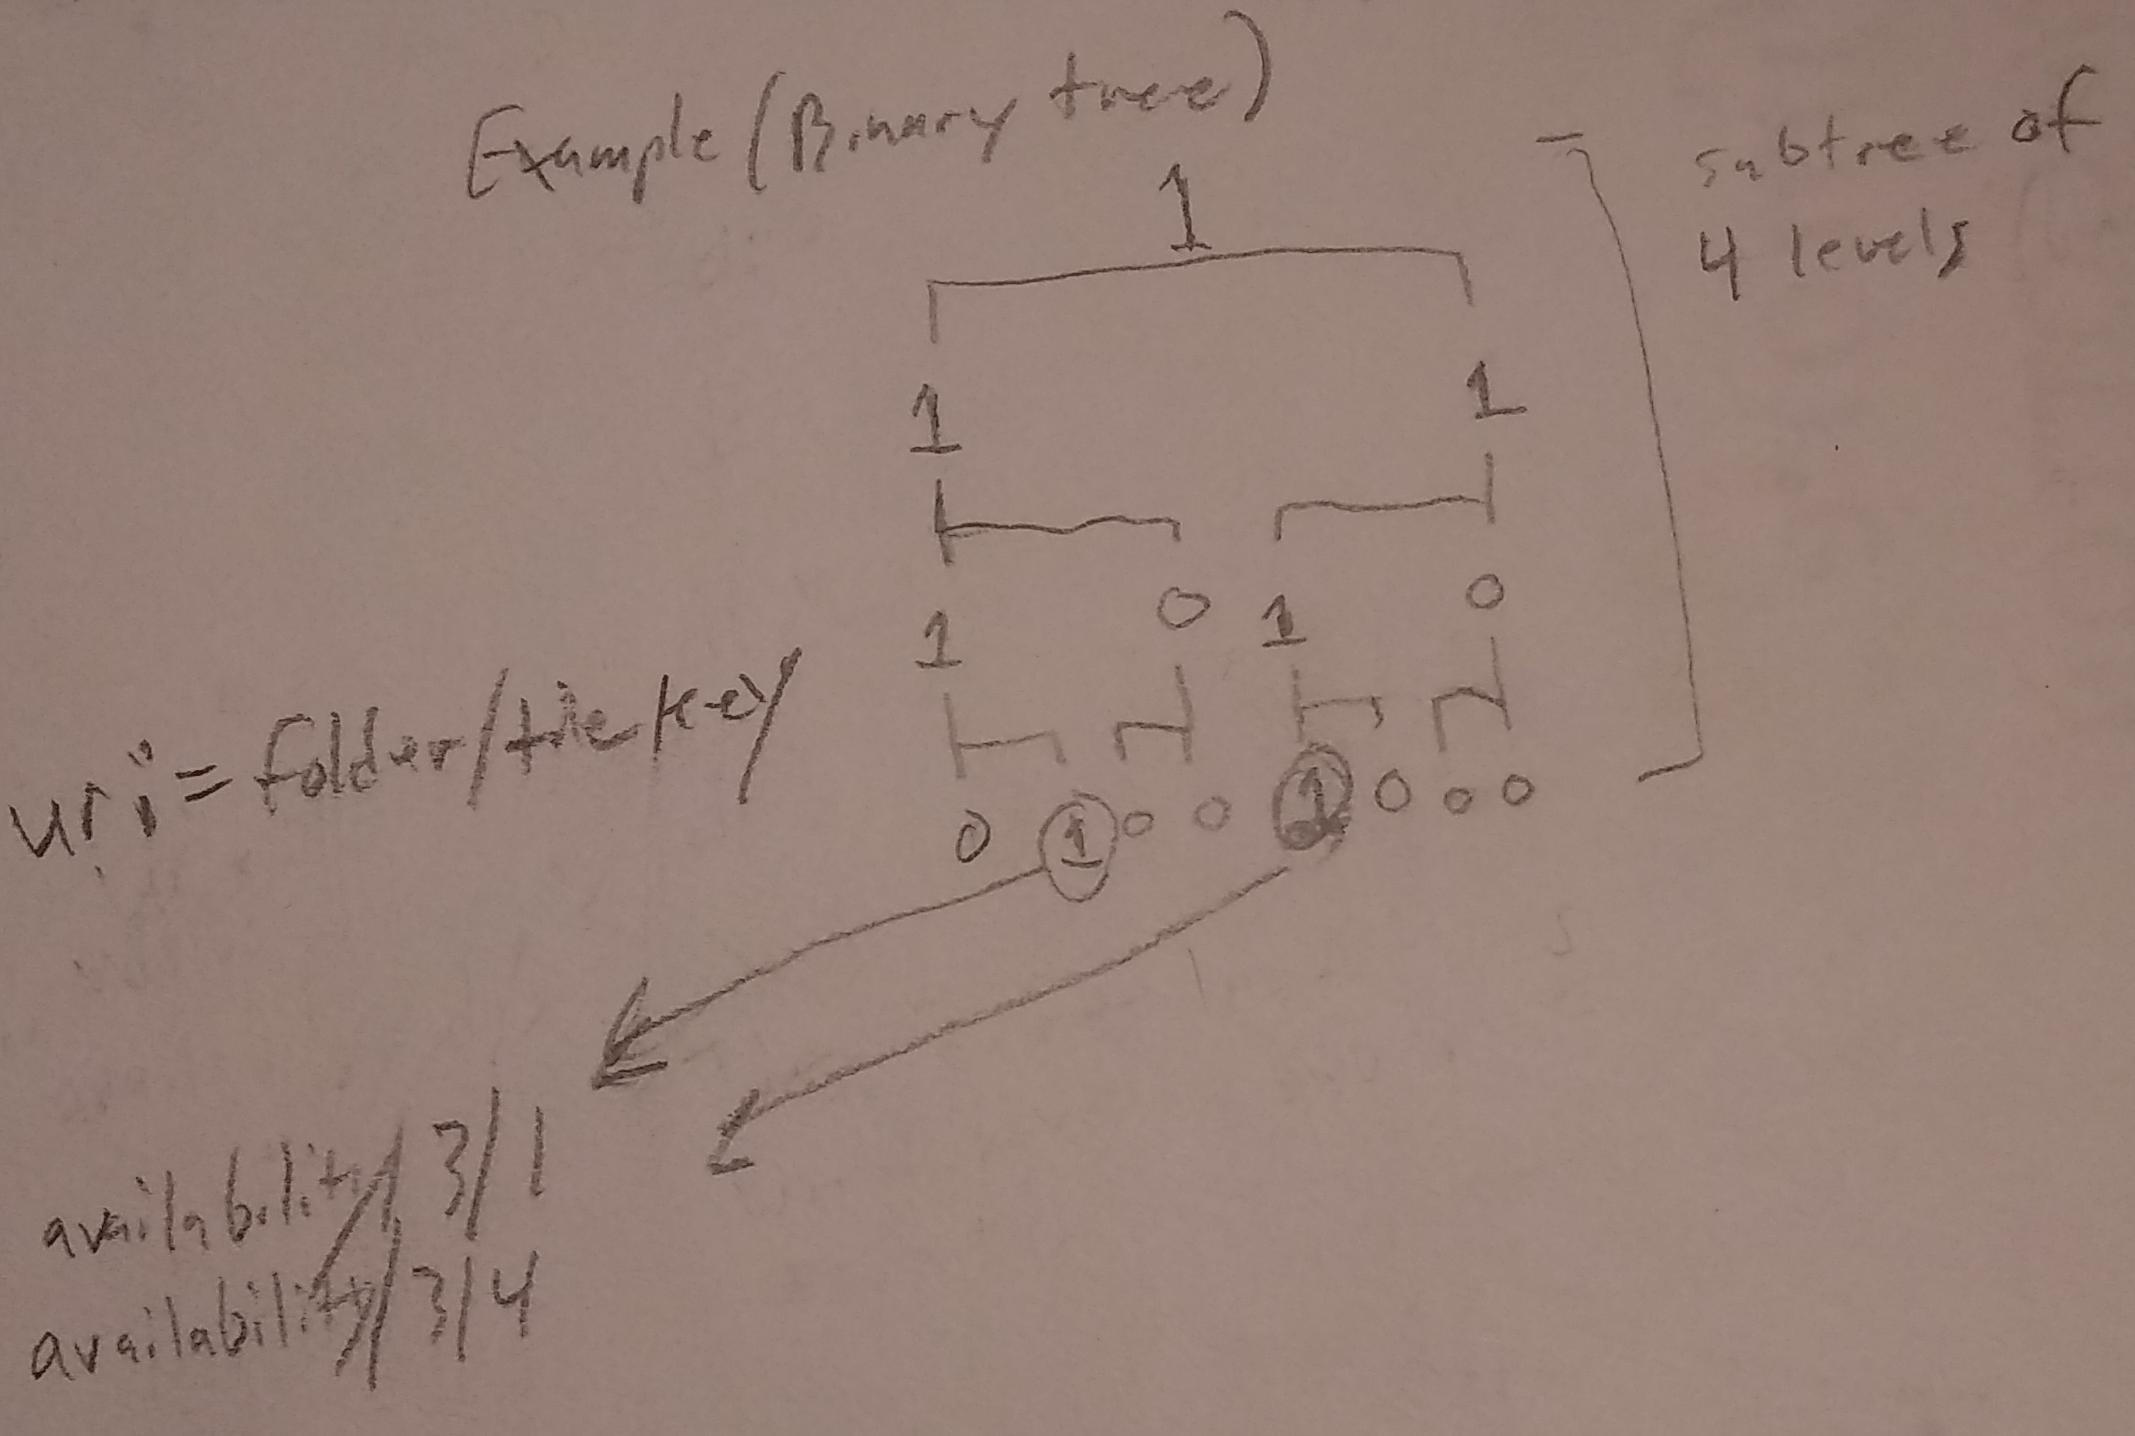 Example (Binary tree)
subtree of
4 levels
1
1 1
1 0 1 0
0 1 0 0 1 0 0 0
uri = folder/tilekey
availability/3/1
availability/3/4